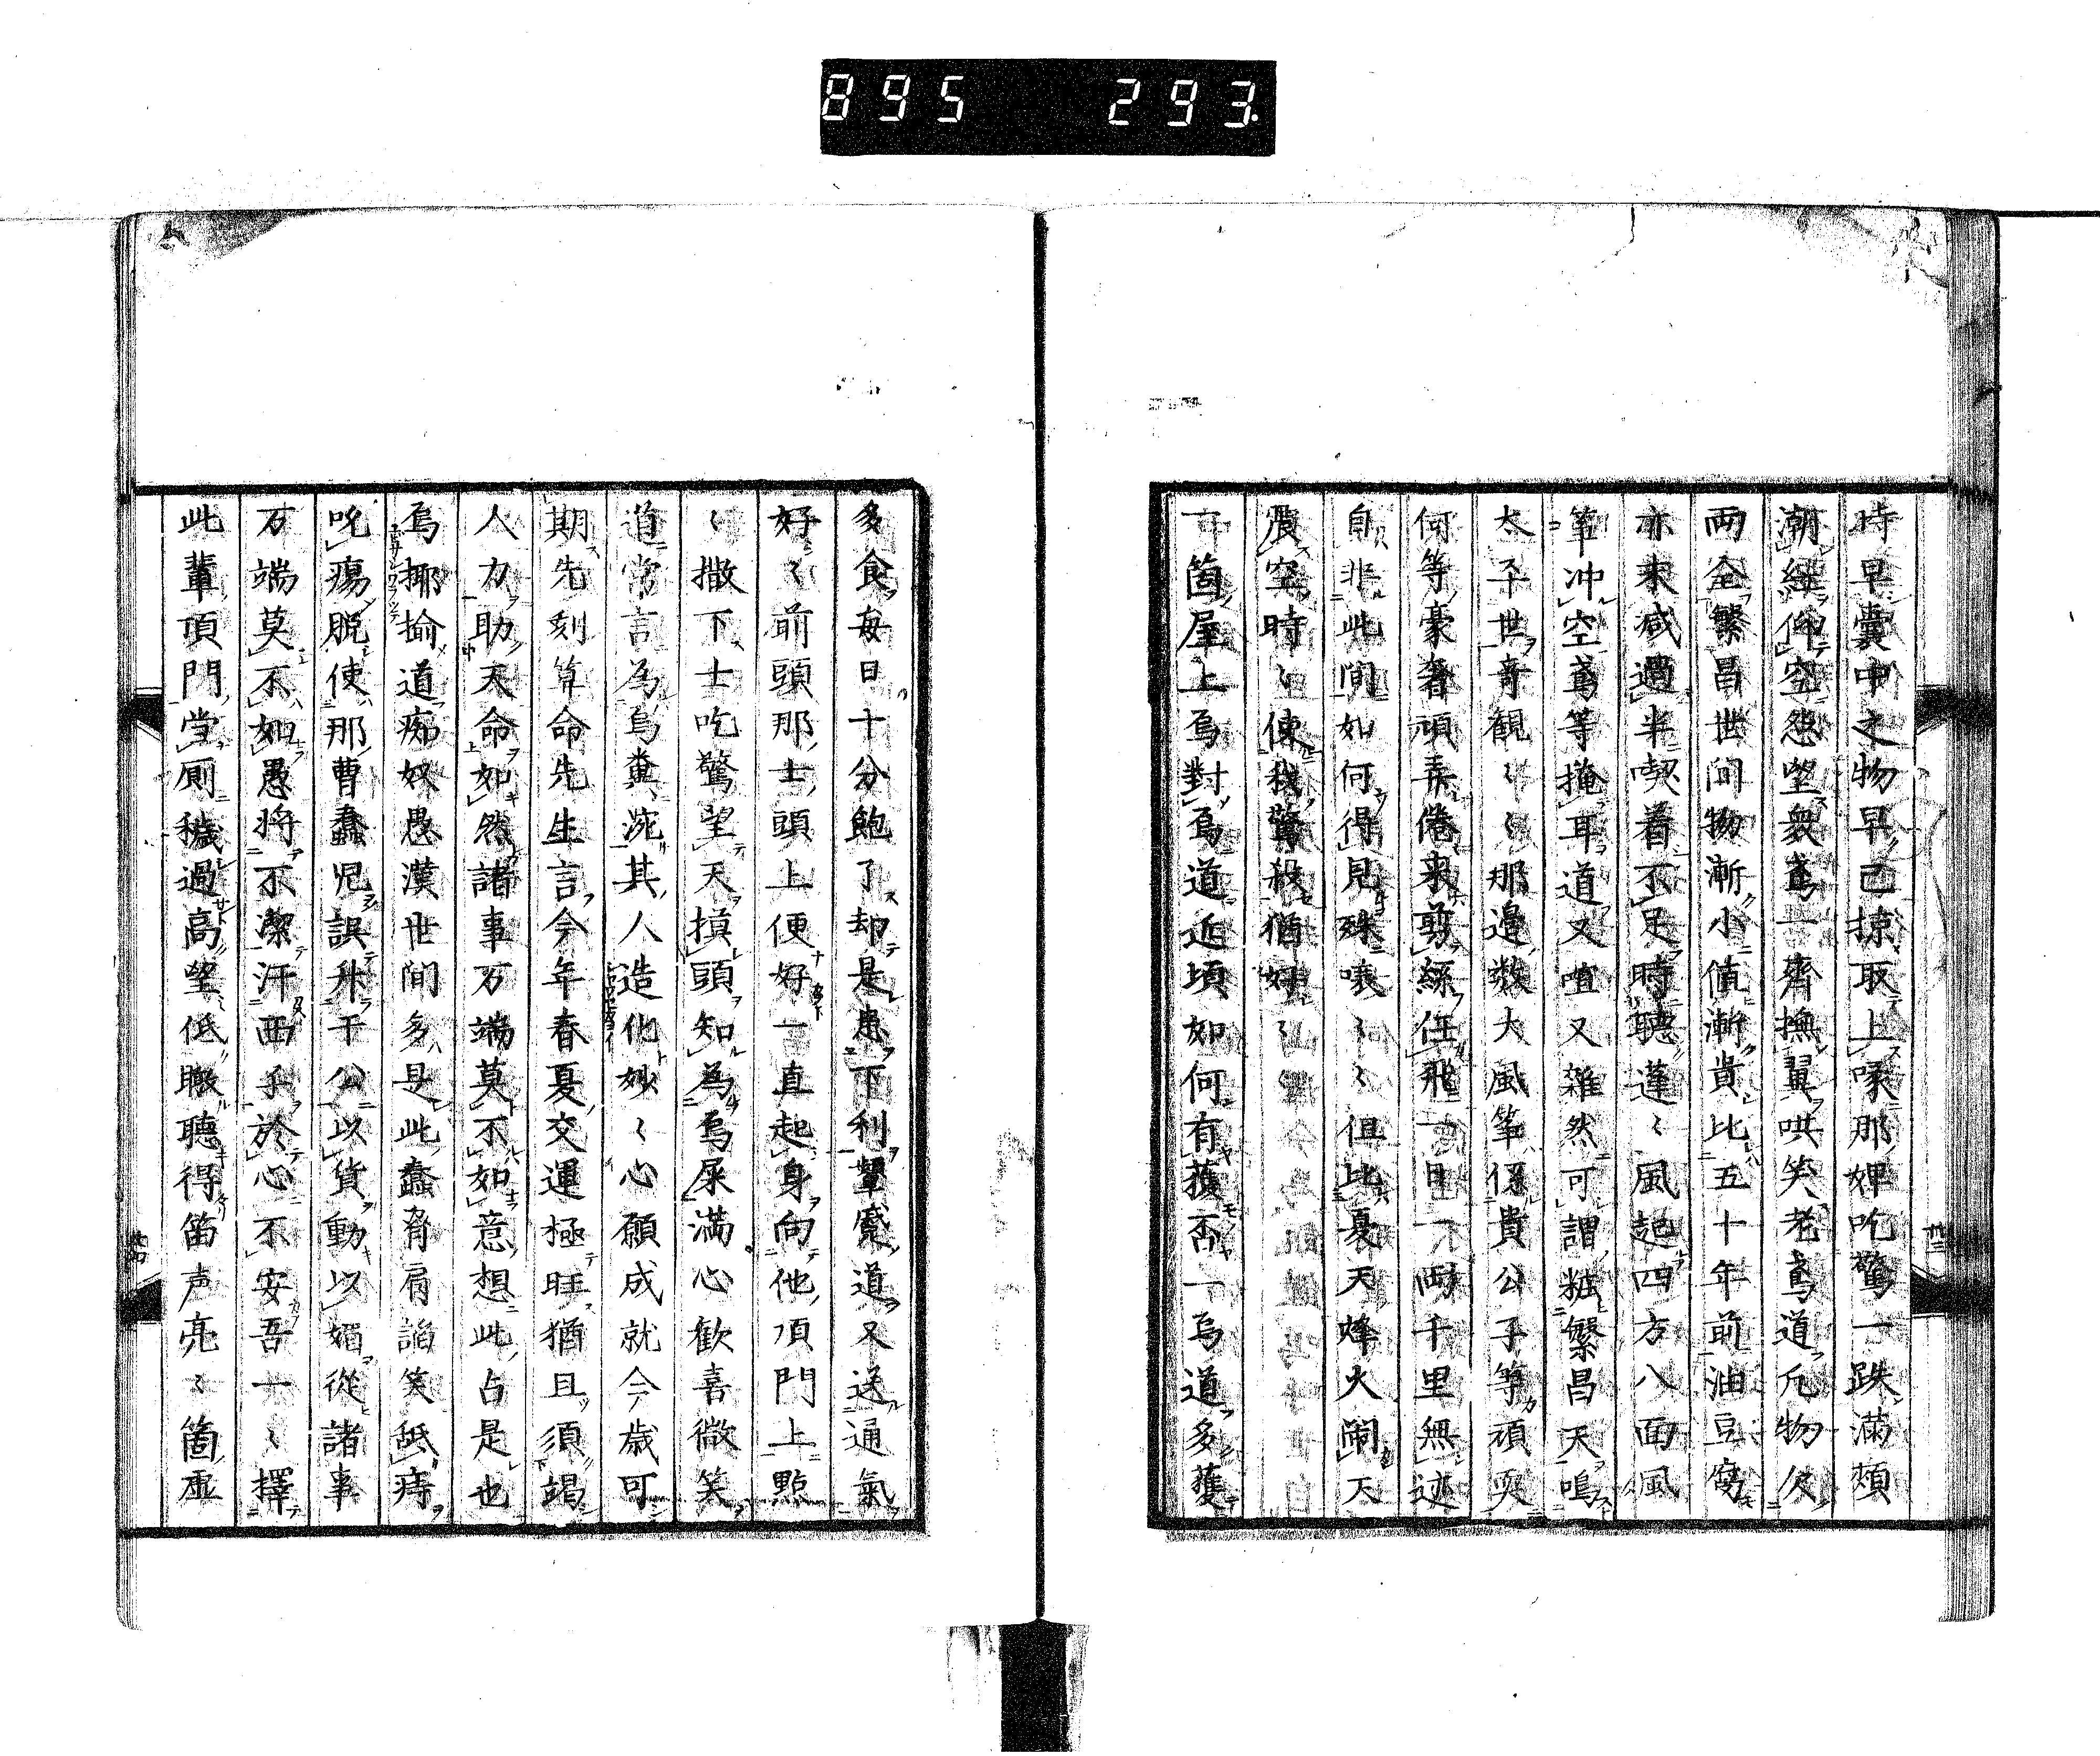 895 293
時早囊中之物早已掠取上喙那婢吃驚一跌滿頬
潮紅仰空怨望衆鳶一齊撫翼哄笑老鳶道凡物久
兩全繁昌世间物漸小值漸貴比五十年前油豆腐
亦未减過半喫着不足時聴蓬〻風起四方八面風
箏冲空鳶等掩耳道又喧又雑然可謂粧繁昌天鳴
太平世奇観〻〻那邊数大風箏係貴公子等頑耍
何等豪奢頑弄倦来剪絲任飛一日一兩千里無迹
自非此間如何得見殊嚷〻〻但比夏天烽火闹天
震空時〻使我驚殺猶好〻
一箇屋上烏對烏道近頃如何有獲否一烏道多獲
多食毎日十分飽了却是患下利顰蹙道又送通氣
好〻前頭那士頭上便好一直起身向他頂門上點
〻撒下士吃驚望天摸頭知為烏屎満心歓喜微笑
道常言為烏糞涴其人造化妙〻心願成就今歳可
期先刻算命先生言今年春夏交運極旺猶且須竭
人力助天命如然諸事万端莫不如意想此占是也
烏揶揄道痴奴愚漢世間多是此蠢脅肩諂笑舐痔
吮瘍脱使那曹蠢児誤升干公以貨動以媚從諸事
万端莫不如愚将不潔汗西子於心不安吾一〻擇
此輩頂門當厠穢過高望低瞰聴得笛声亮〻箇虚